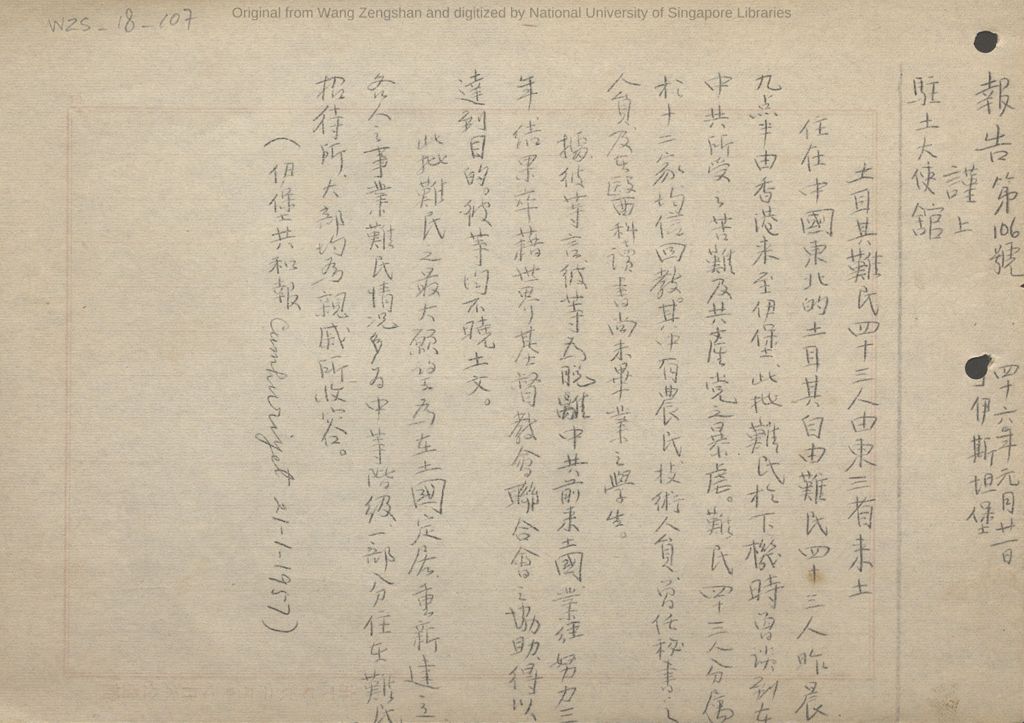 Original from Wang Zengshan and digitized by National University of Singapore Libraries
WZS-18-107
報告第106號
四十六年元月廿一日
于伊斯坦堡
謹上
駐土大使館
土耳其難民四十三人由東三省來土
住在中國東北的土耳其自由難民四十三人昨晨
九点半由香港来至伊堡、此批難民於下機時曾談到在
中共所受之苦難及共產党之暴虐。難民四十三人分屬
於十二家均信回教。其中有農民技術人員曾任秘書之
人員及在醫西科讀書尚未畢業之學生。
據彼等言彼等為脫離中共前来土國業經努力三
年結果卒藉世界基督教會聯合會之協助得以
達到目的。彼等均不曉土文。
此批難民之最大願望為在土國定居重新建立
各人之事業難民情况多为中等階級一部分住在難民
招待所、大部均為親戚所收容。
(伊堡共和報 Cumhuriyet 21-1-1957)